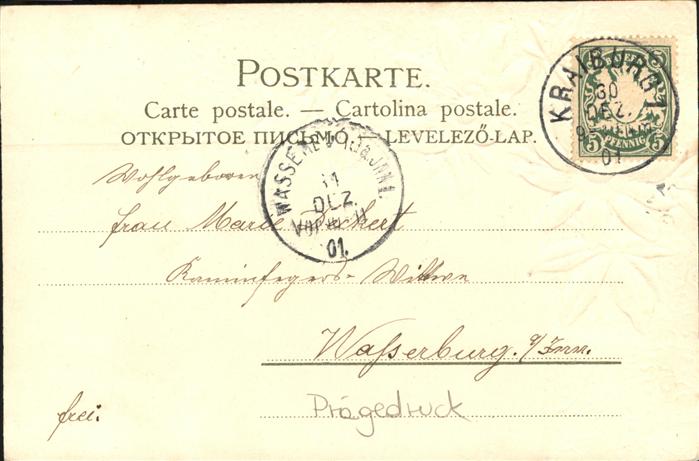 POSTKARTE.
Carte postale. — Cartolina postale.
ОТКРЫТОЕ ПИСЬМО. — LEVELEZŐ-LAP.
KRAIBURG 1
30
DEZ.
01
5 5
5 PFENNIG 5
31
DEZ.
VORM. 11
01.
Wohlgeboren
Frau Marie
Kaminfegers-Wittwe
Wasserburg. a/Inn.
frei.
Prägedruck